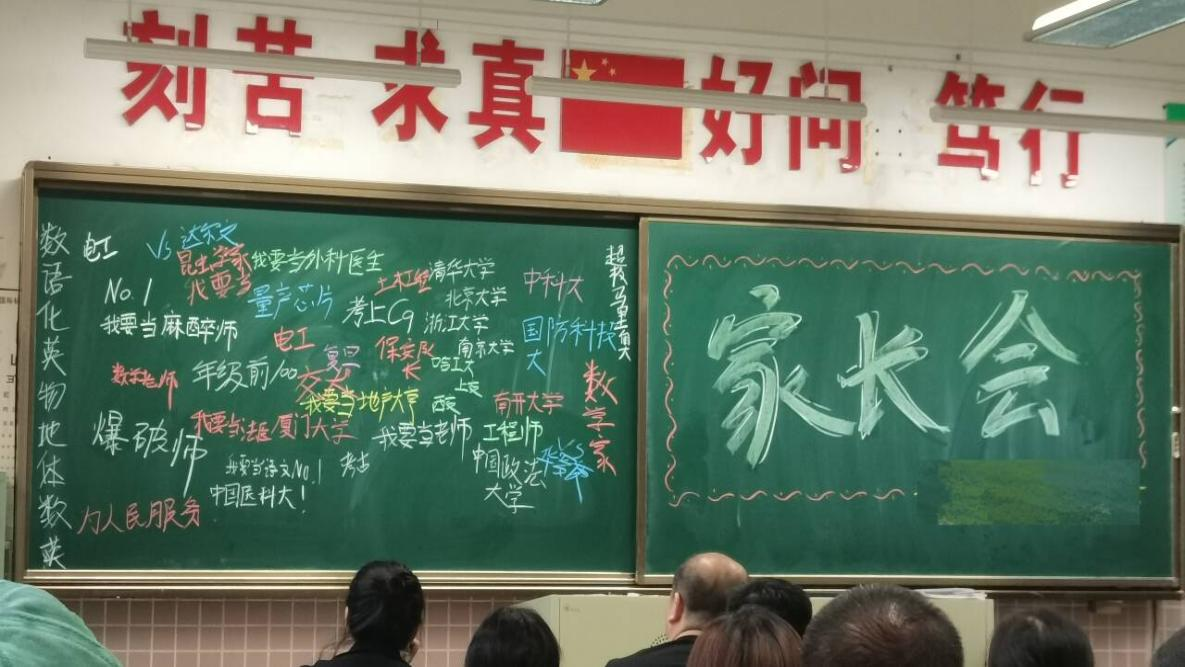 刻苦 求真 好问 笃行
数语化英物地体数英
电工
VS 达尔文
昆虫学家
我要当
我要当外科医生
No.1
量产芯片
土木工程
清华大学
中科大
超越马里奥大
考上C9
北京大学
浙江大学
我要当麻醉师
电工
保安队长
南京大学
国防科技大
复旦
交大
哈工大
上交
西交
数学老师
年级前100
我要当地产大亨
南开大学
数学家
爆破师
我要当法医
厦门大学
我要当老师
工程师
我要当语文No.1
考古
中国政法大学
中国医科大！
为人民服务
家长会